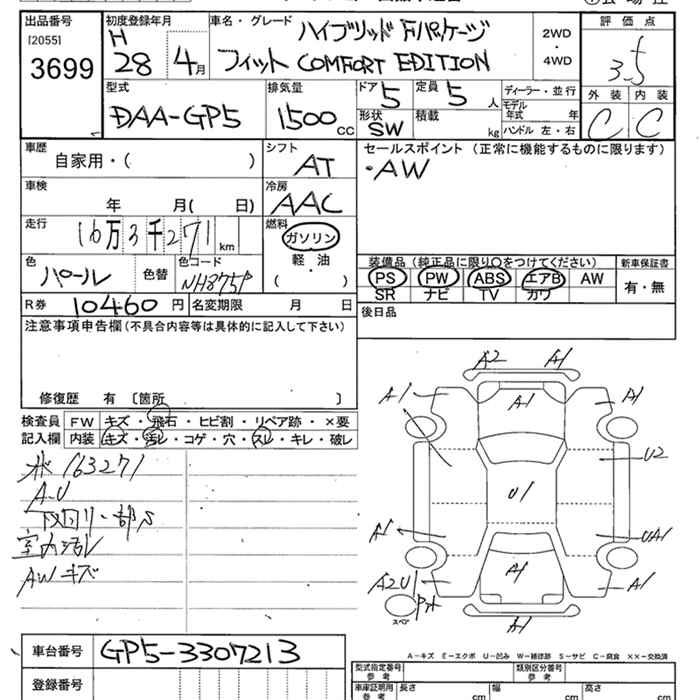 出品番号
[2055]
3699
初度登録年月
H
28 4月
車名・グレード
ハイブリッド Fパッケージ
フィット COMFORT EDITION
2WD
・
4WD
評価点
3.5
外装 内装
C C
型式
DAA-GP5
排気量
1500 CC
ドア 5
形状 SW
定員 5 人
積載 kg
ディーラー・並行
モデル年式 年
ハンドル 左・右
車歴
自家用・( )
シフト
AT
車検
年 月( 日)
冷房
AAC
走行
16万3千271km
燃料
ガソリン
軽・油
( )
色
パール
色替
色コード
NH875P
R券 10460円
名変期限 月 日
セールスポイント (正常に機能するものに限ります)
・AW
装備品 (純正品に限り〇をつけてください)
PS PW ABS エアB AW
SR ナビ TV カワ
新車保証書
有・無
後日品
注意事項申告欄(不具合内容等は具体的に記入して下さい)
修復歴 有 〔箇所 〕
検査員
記入欄
FW キズ・飛石・ヒビ割・リペア跡・×要
内装 キズ・汚レ・コゲ・穴・スレ・キレ・破レ
163271
A-U
下回り一部S
室内汚レ
AWキズ
A2 A1
A1 A1 A1
U2
U1
A1 UA1
A2U1 A1 A1
スペア
A1
A-キズ E-エクボ U-凹み W-補修跡 S-サビ C-腐食 ××-交換済
車台番号 GP5-3307213
登録番号
型式指定番号 参考
類別区分番号 参考
車庫証明用 参考
長さ cm 幅 cm 高さ cm